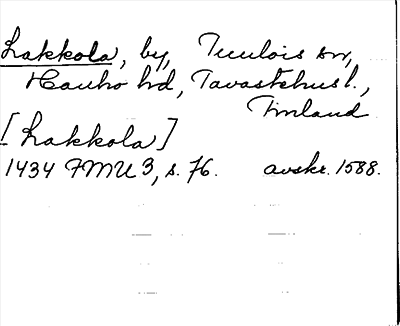 Lakkola, by, Tuulois sn,
Hauho hd, Tavastehus l.,
Finland
[Lakkola]
1434 FMU 3, s. 76. avskr. 1588.